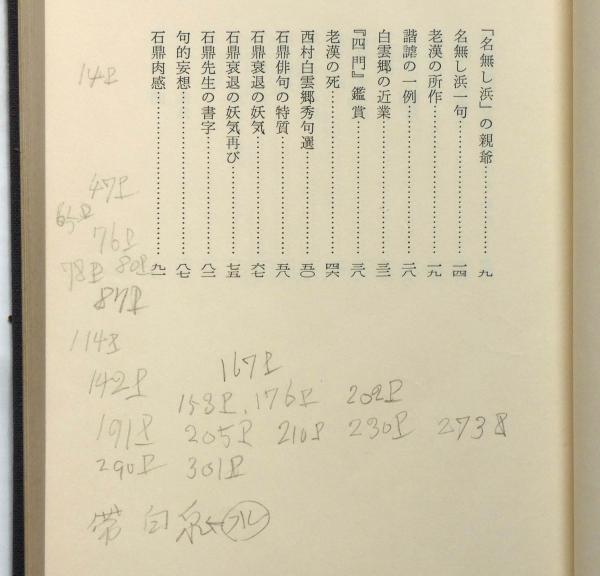 「名無し浜」の親爺………………九
名無し浜一句………………一四
老漢の所作………………一九
諧謔の一例………………二八
白雲郷の近業………………三三
『四門』鑑賞………………三八
老漢の死………………四六
西村白雲郷秀句選………………五〇
石鼎俳句の特質………………五八
石鼎衰退の妖気………………六七
石鼎衰退の妖気再び………………七五
石鼎先生の書字………………八二
句的妄想………………八七
石鼎肉感………………九一
14P
47P
65P
76P
78P 80P
87P
114P
167P
142P 158P. 176P 202P
191P 205P 210P 230P 273P
290P 301P
帯 白